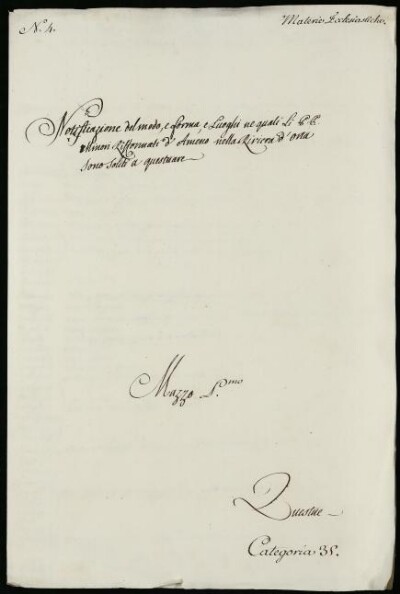 N.º 4.
Materie Ecclesiastiche.
Notificazione del modo, e forma, e Luoghi ne quali Li P.P.
Minori Rifformati d'Ameno nella Riviera d'Orta
sono soliti a questuare
Mazzo P.mo
Questue
Categoria 35.